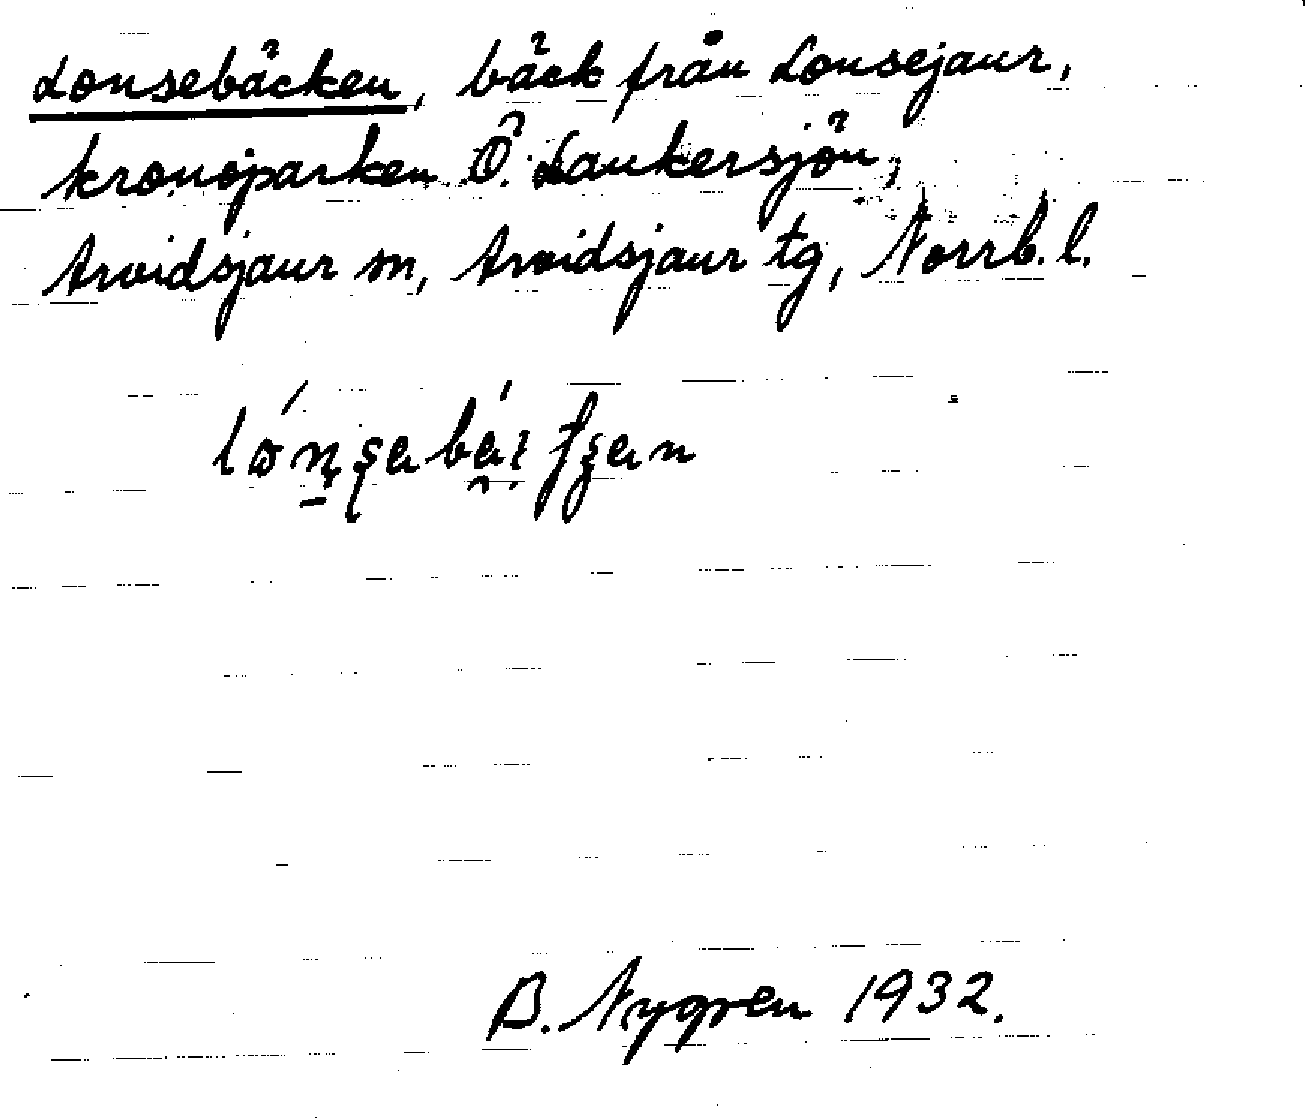 Lonsebäcken, bäck från Lonsejaur,
kronoparken Ö. Laukersjön,
Arvidsjaur sn, Arvidsjaur tg, Norrb. l.
B. Nygren 1932.